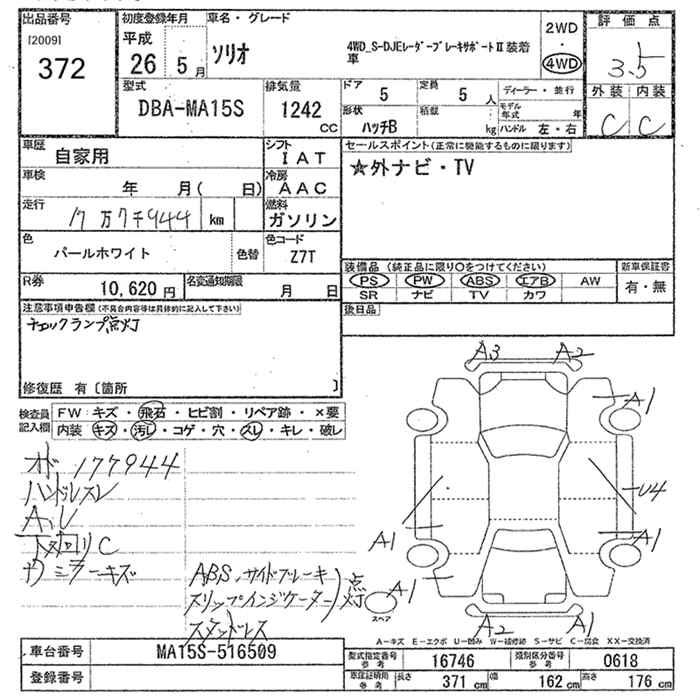 出品番号
[2009]
372
初度登録年月
平成
26 5月
車名・グレード
ソリオ
4WD_S-DJEレーダーブレーキサポートⅡ装着車
2WD
・
4WD
評価点
3.5
外装 内装
C C
型式
DBA-MA15S
排気量
1242
cc
ドア
5
定員
5 人
形状
ハッチB
積載
kg
ディーラー・並行
モデル年式 年
ハンドル 左・右
車歴
自家用
シフト
IAT
車検
年 月( 日)
冷房
AAC
走行
17万7千944 km
燃料
ガソリン
色
パールホワイト
色替
色コード
Z7T
R券
10,620円
名変通知期限
月 日
セールスポイント(正常に機能するものに限ります)
☆外ナビ・TV
装備品(純正品に限り○をつけてください)
PS PW ABS エアB AW
SR ナビ TV カワ
新車保証書
有・無
後日品
注意事項申告欄(不具合内容等は具体的に記入して下さい)
チェックランプ点灯
修復歴 有〔箇所 〕
検査員記入欄
FW: キズ・飛石・ヒビ割・リペア跡・×要
内装: キズ・汚レ・コゲ・穴・スレ・キレ・破レ
オド 177944
ハンドルスレ
A、U
下廻りC
ミラーキズ
ABS、サイドブレーキ
スリップインジケーター)点灯
スタッドレス
A3 A2
A1
U4
A1 A1
A1
スペア
A2 A1
A－キズ E－エクボ U－凹み W－補修跡 S－サビ C－腐食 XX－交換済
車台番号
MA15S-516509
登録番号
型式指定番号 参考
16746
類別区分番号 参考
0618
車庫証明用 参考
長さ 371 cm
幅 162 cm
高さ 176 cm